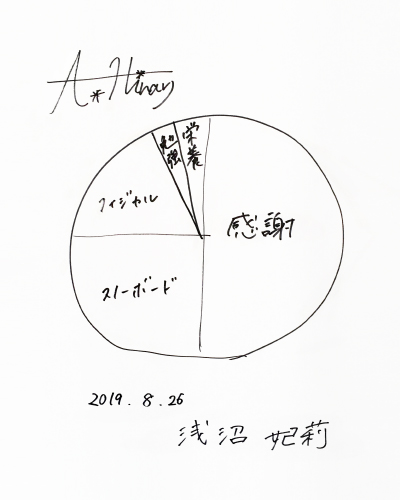 A*Hinary
栄養
勉強
フィジカル
感謝
スノーボード
2019.8.26
浅沼 妃莉